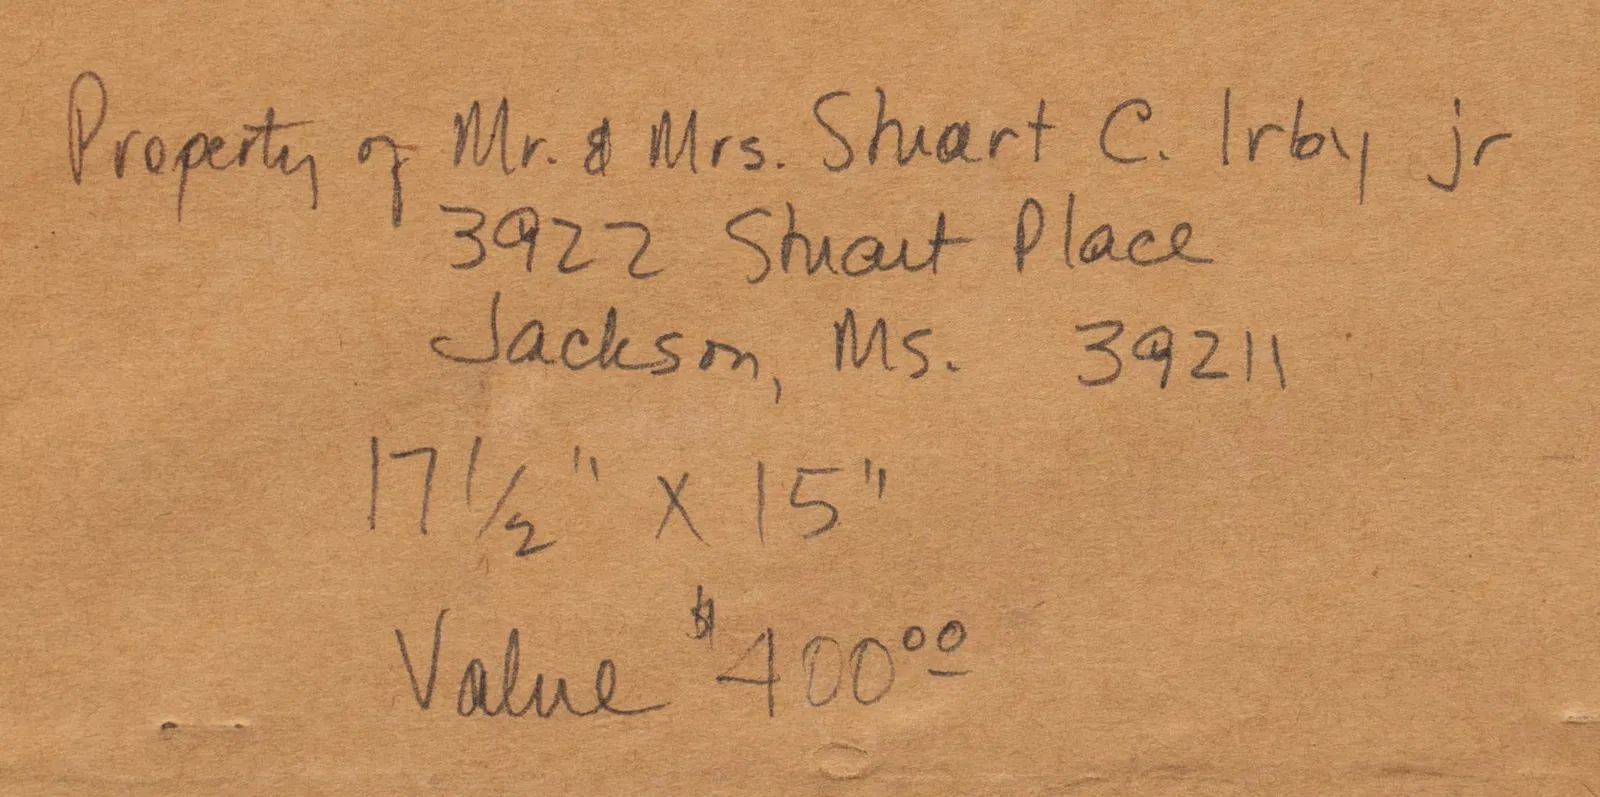 Property of Mr. & Mrs. Stuart C. Irby jr
3922 Stuart Place
Jackson, Ms. 39211
17 1/2" x 15"
Value $400.00